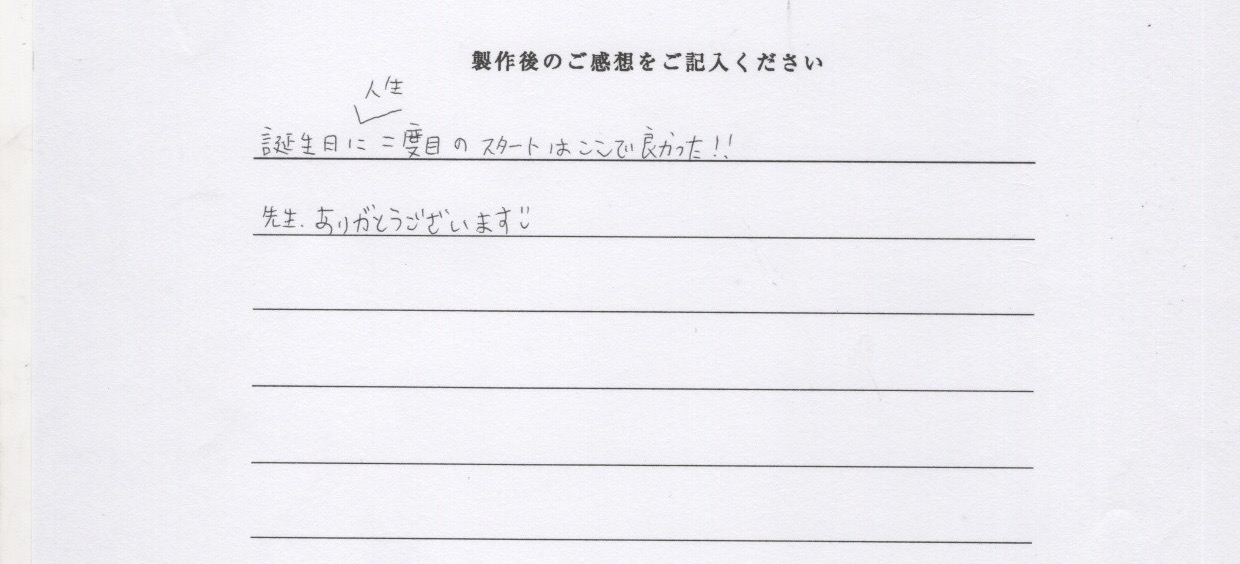 製作後のご感想をご記入ください
人生
誕生日に二度目のスタートはここで良かった!!
先生、ありがとうございます